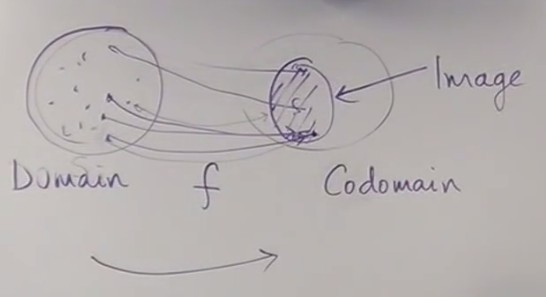 Image
Domain f Codomain